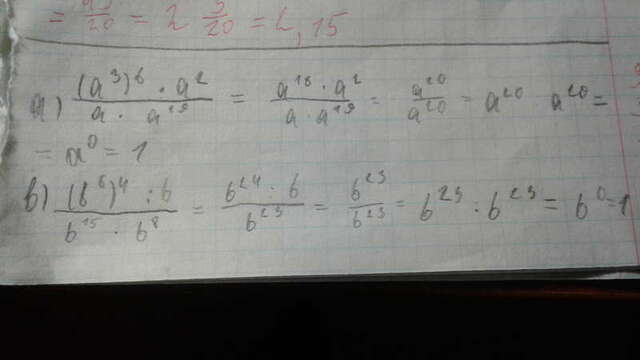 = 2/20 = 2 3/20 = 2,15
а) (a³)⁶ · a² / a · a¹⁹ = a¹⁸ · a² / a · a¹⁹ = a²⁰ / a²⁰ = a²⁰ : a²⁰ =
= a⁰ = 1
в) (b⁶)⁴ : b / b¹⁵ · b⁸ = b²⁴ : b / b²³ = b²³ / b²³ = b²³ : b²³ = b⁰ = 1